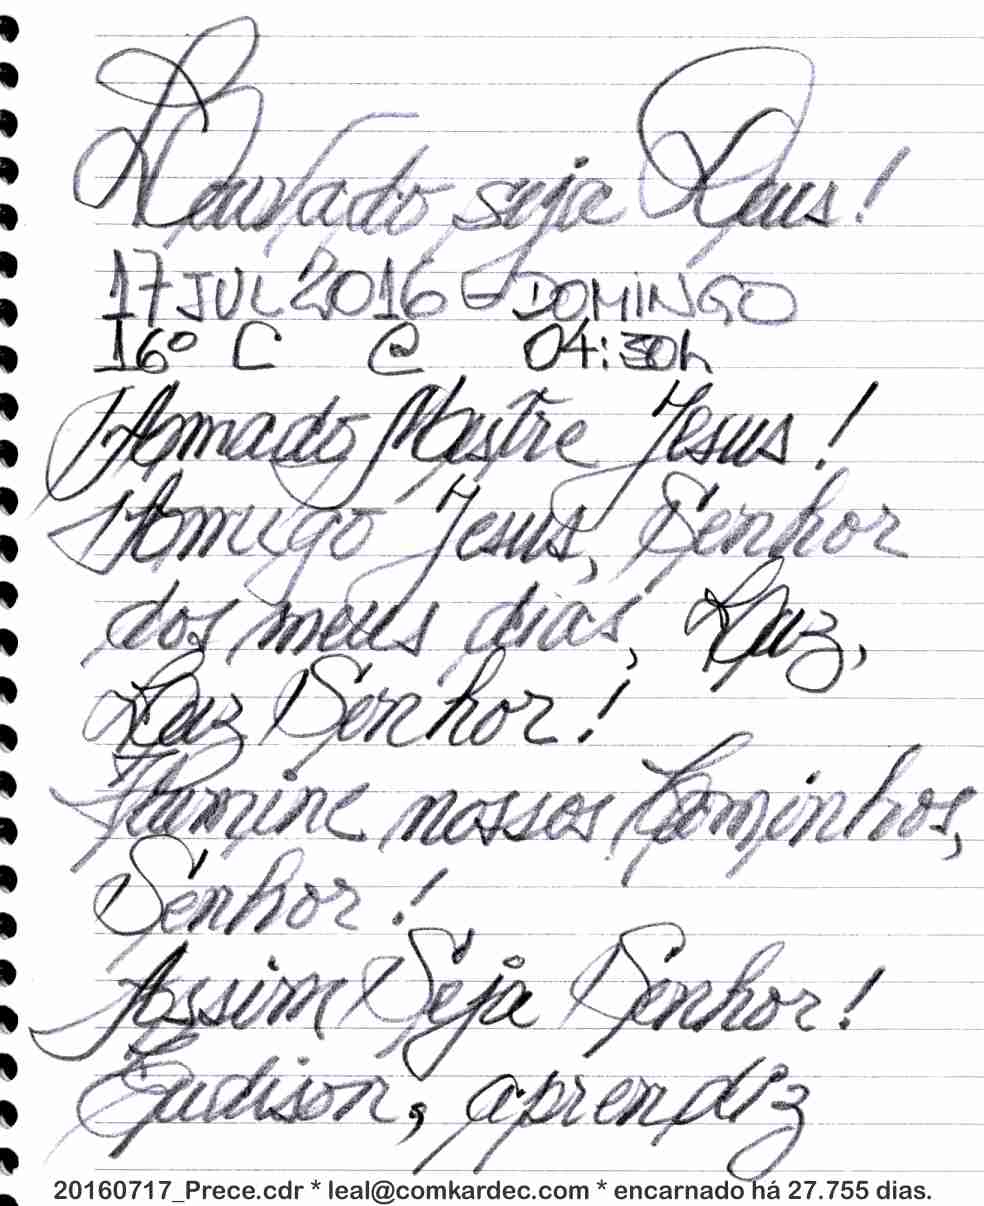 Louvado seja Deus!
17 JUL 2016 - DOMINGO
16º C @ 04:30h
Amado Mestre Jesus!
Amigo Jesus, Senhor
dos meus dias, Luz,
Luz Senhor!
Ilumine nossos Caminhos,
Senhor!
Assim Seja Senhor!
Eudison, aprendiz
20160717_Prece.cdr * leal@comkardec.com * encarnado há 27.755 dias.